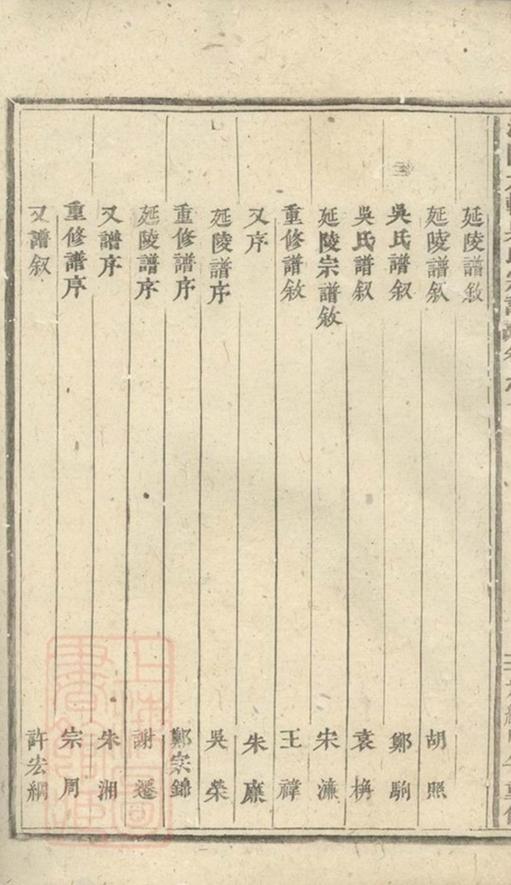 延陵譜敘
延陵譜叙 胡照
吳氏譜叙 鄭駒
吳氏譜叙 袁桷
延陵宗譜敘 宋濂
重修譜敘 王褘
又序 朱廉
延陵譜序 吳榮
重修譜序 鄭宗錦
延陵譜序 謝遷
又譜序 朱湘
重修譜序 宗周
又譜叙 許宏綱